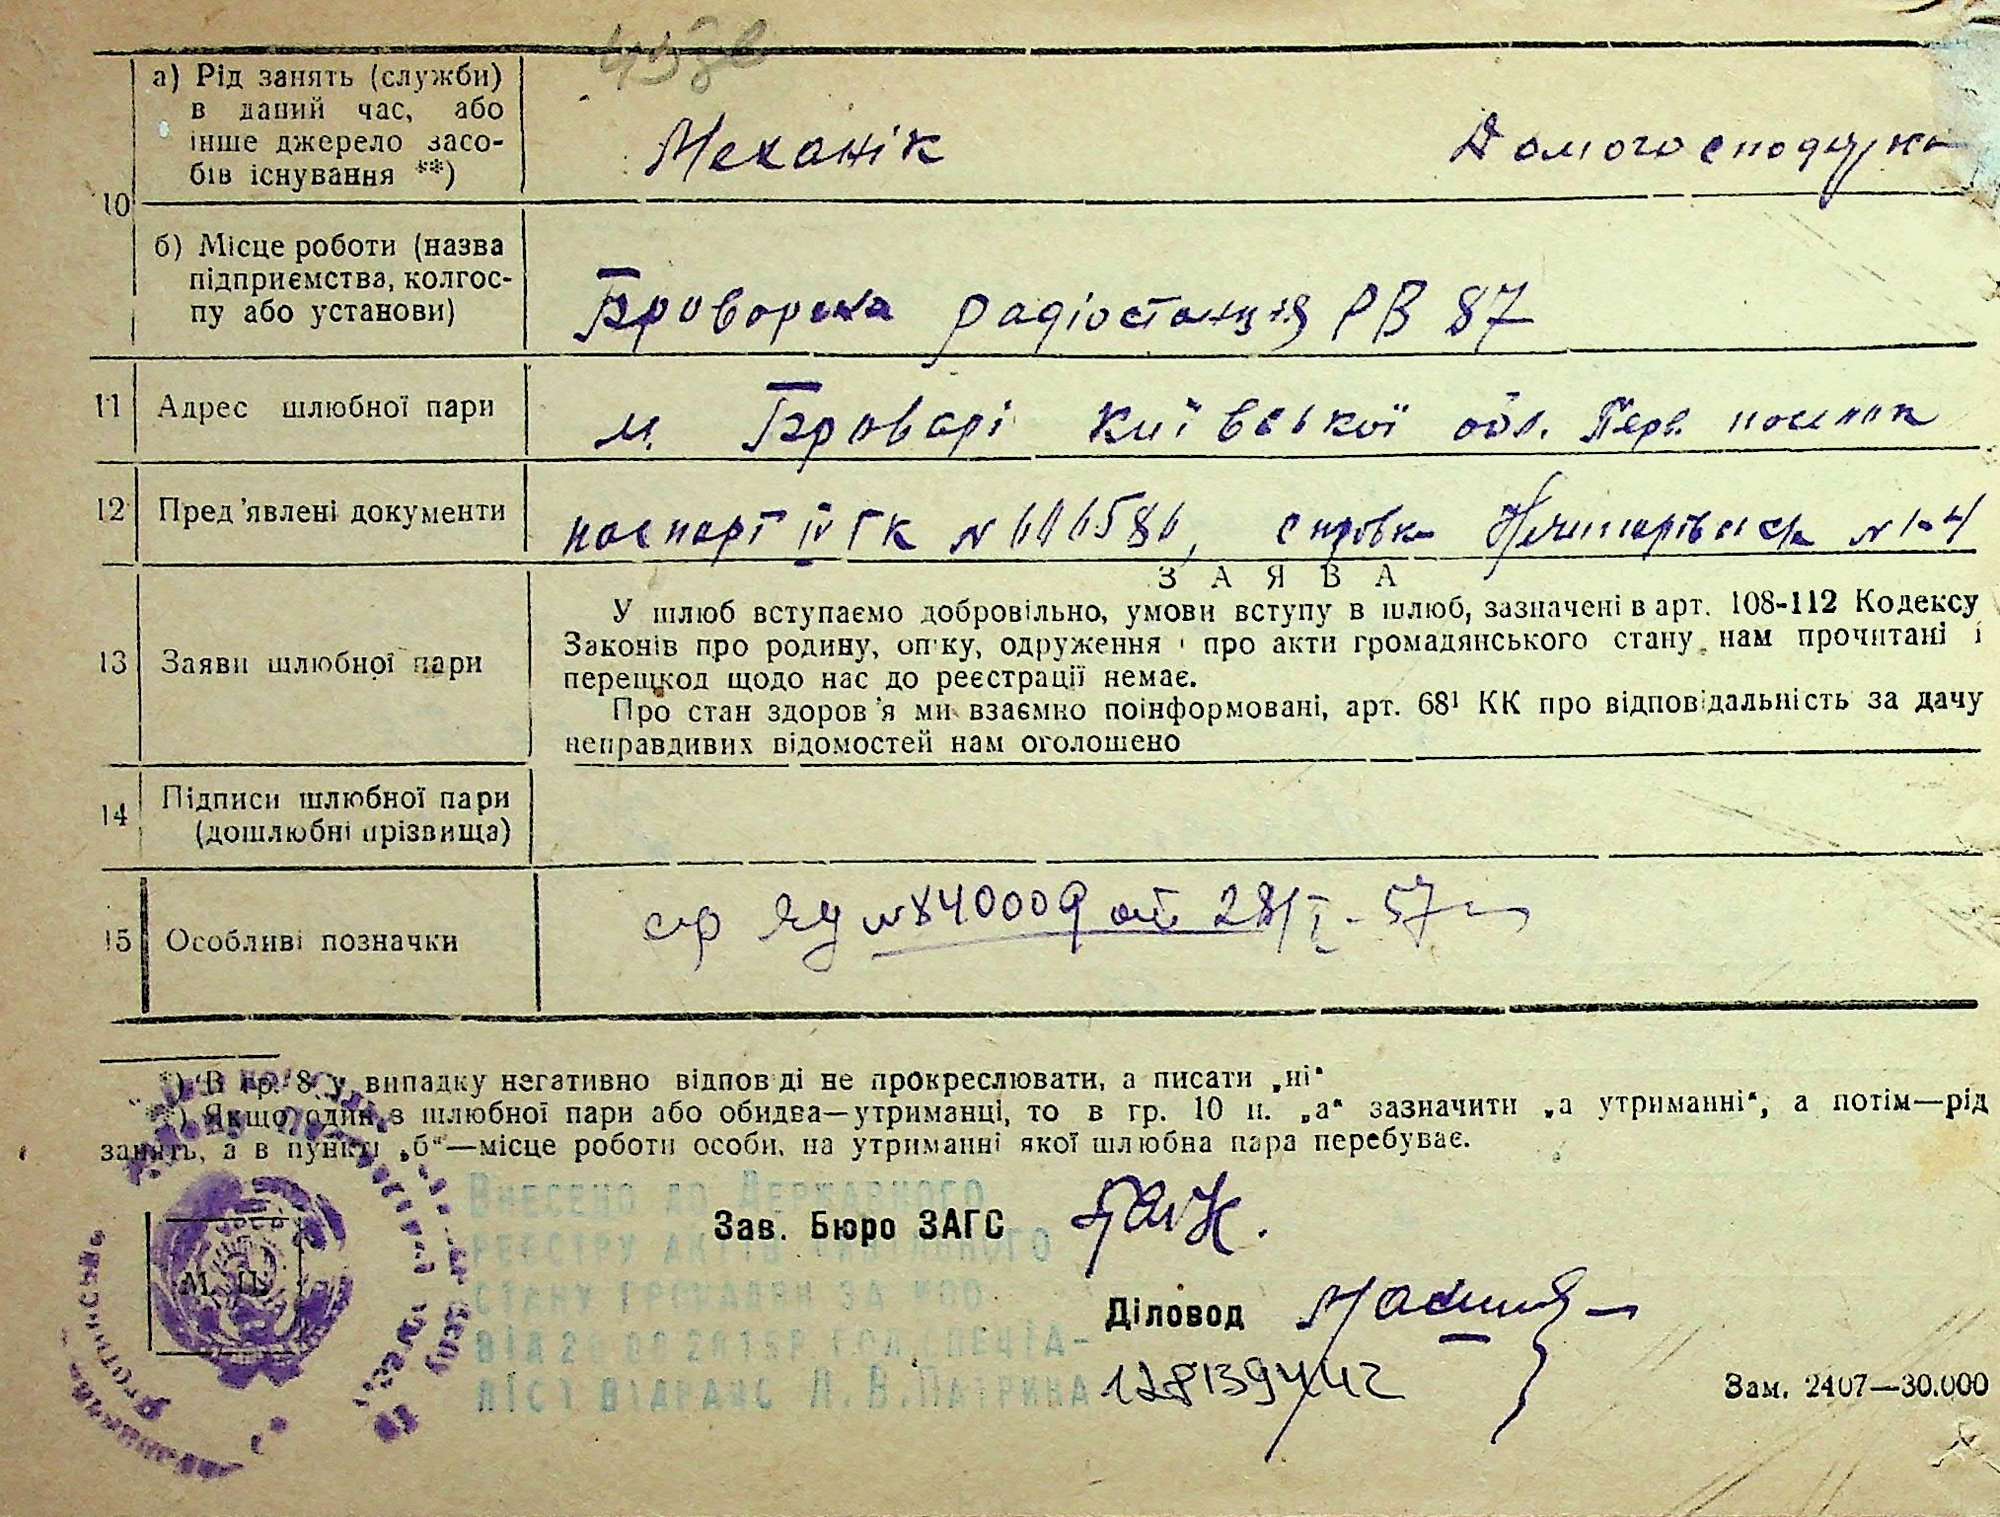 10
а) Рід занять (служби)
в даний час, або
інше джерело засо-
бів існування **)
Механік Домогосподурка
б) Місце роботи (назва
підприємства, колгос-
пу або установи)
Броворска радіостанция РВ 87
11 Адрес шлюбної пари
м. Броварі Київської обл. Перв. поселок
12 Пред'явлені документи
паспорт IV ГК N 606586, справка N 1-4
13 Заяви шлюбної пари
ЗАЯВА
У шлюб вступаємо добровільно, умови вступу в шлюб, зазначені в арт. 108-112 Кодексу
Законів про родину, опіку, одруження і про акти громадянського стану нам прочитані і
перешкод щодо нас до реєстрації немає.
Про стан здоров'я ми взаємно поінформовані, арт. 68¹ КК про відповідальність за дачу
неправдивих відомостей нам оголошено
14 Підписи шлюбної пари
(дошлюбні прізвища)
15 Особливі позначки
N 840009 от 28/I-57г
*) В гр. 8 у випадку негативно відповіді не прокреслювати, а писати „ні“
**) Якщо один з шлюбної пари або обидва—утриманці, то в гр. 10 п. „а“ зазначити „а утриманні“, а потім—рід
занять, а в пункті „б“—місце роботи особи, на утриманні якої шлюбна пара перебуває.
Внесено до Державного
реєстру актів цивільного
стану громадян за №00
від 2015р. гол.спеціа-
ліст Відрацс Л.В.Патрина
Зав. Бюро ЗАГС
М. П.
Діловод
Зам. 2407—30.000